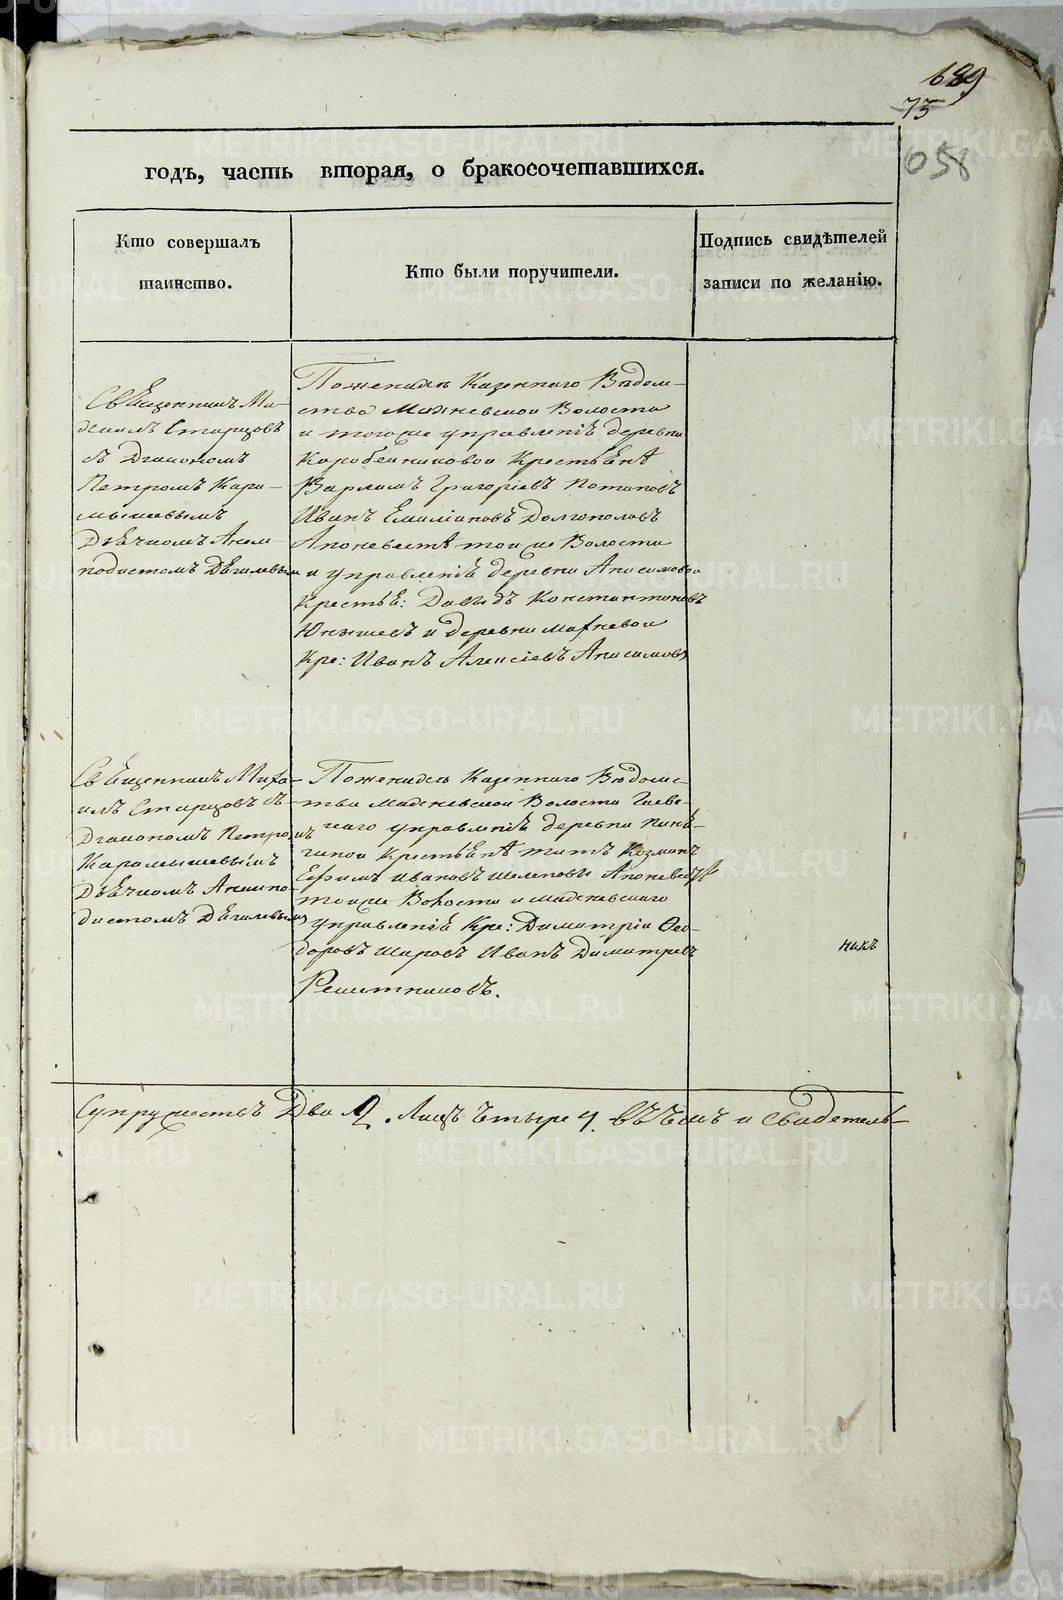 689
73
058
годъ, часть вторая, о бракосочетавшихся.
Кто совершалъ
таинство.
Кто были поручители.
Подпись свидѣтелей
записи по желанію.
Священникъ Ми-
Старцовъ
съ Диакономъ
Петромъ Кара-
мышевымъ
Дьячкомъ Аким-
подистомъ Дягилевым
По женихѣ Казеннаго Вѣдом-
ства Волости
и тогоже управленія деревни
Коробейниковой Крестьяне
Варламъ Григорьевъ Потаповъ
Иванъ Емиліановъ Долгополовъ
А по невестѣ той же Волости
и управленія деревни Анисимовой
Крестья: Давыдъ Константиновъ
Юнышевъ и деревни Махневой
Кре: Иванъ Алексіевъ Анисимовъ
Священникъ Миха-
илъ Старцовъ съ
Диакономъ Петромъ
Карамышевымъ
Дьячкомъ Акимпо-
дистомъ Дягилевымъ
По женихѣ Казеннаго Вѣдомс-
тва Волости Гаев-
скаго управленія деревни
Крестьяне Титъ Козминъ
Ефимъ Ивановъ Шелеповы А по невестѣ
тойже Волости и
управленія Кре: Димитрій Фео-
доровъ Шаровъ Иванъ Димитріевъ
Решетниковъ.
никъ
Супружествъ Два 2. Лицъ Четыре 4. въ чемъ и свидетель-
METRIKI.GASO-URAL.RU